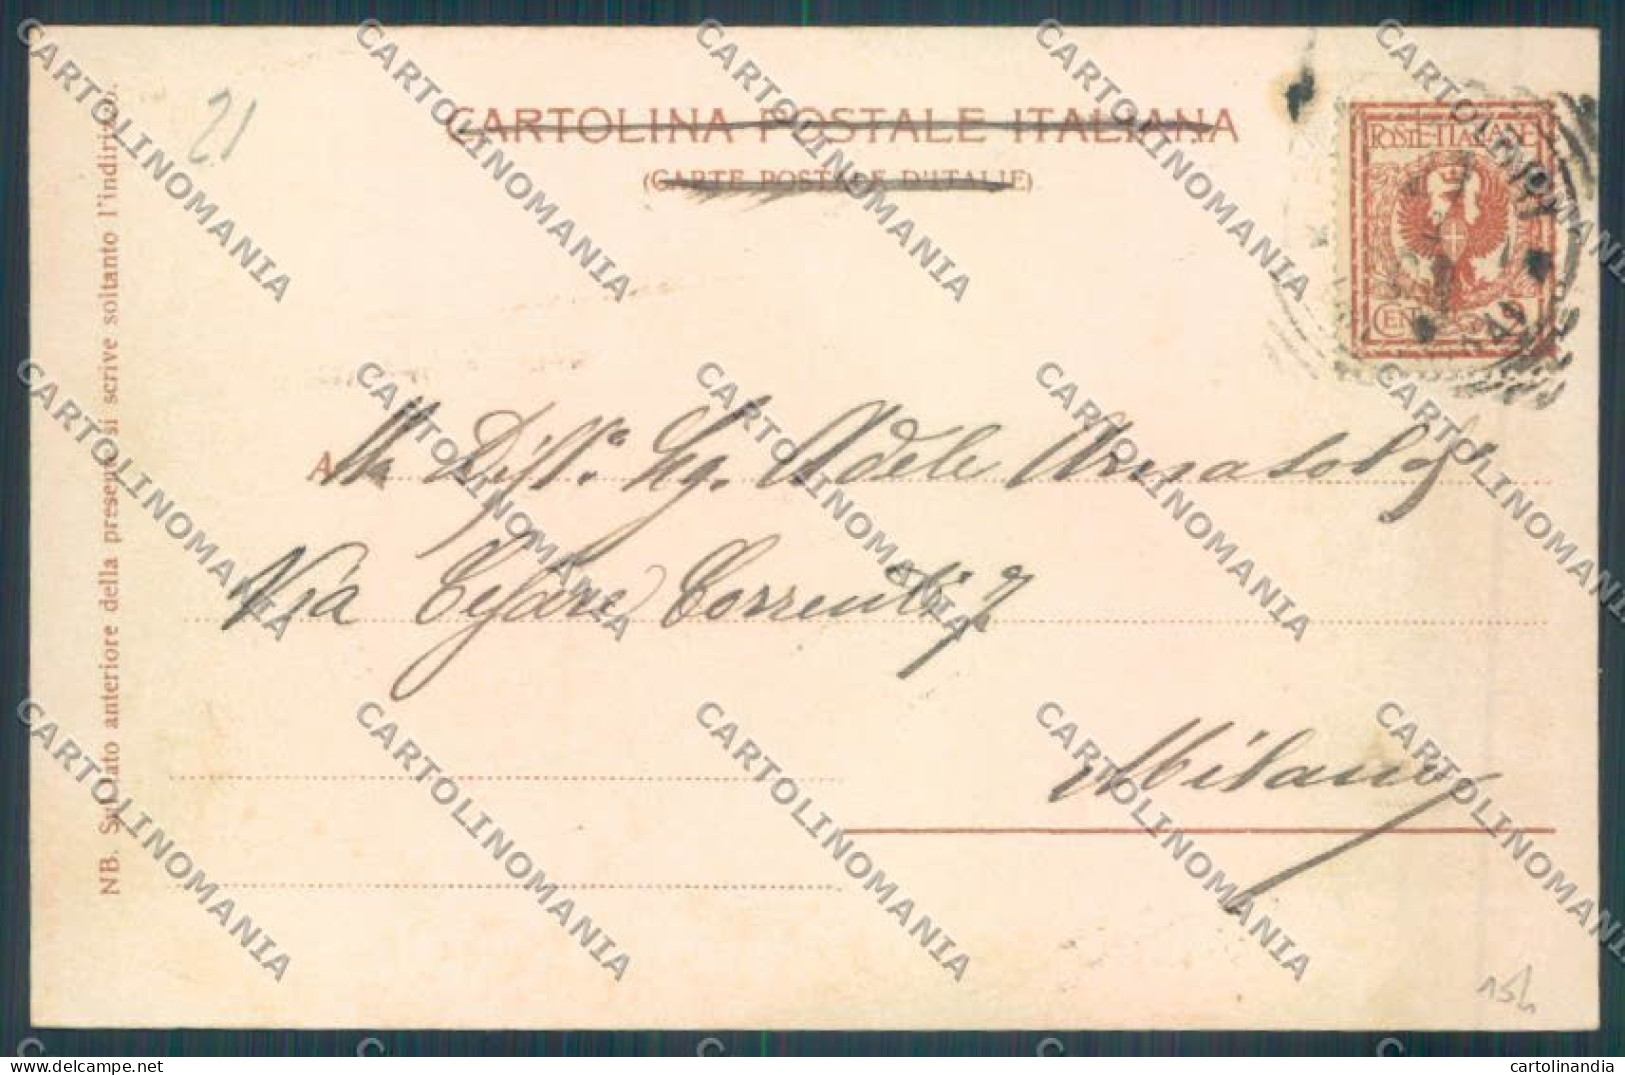 21
CARTOLINA POSTALE ITALIANA
(CARTE POSTALE D'ITALIE)
POSTE ITALIANE
NB. Sul lato anteriore della presente si scrive soltanto l'indirizzo.
A lla Dist.ª Sig. Adele
Via Cesare Correnti 7
Milano
CARTOLINOMANIA
cartolinandia